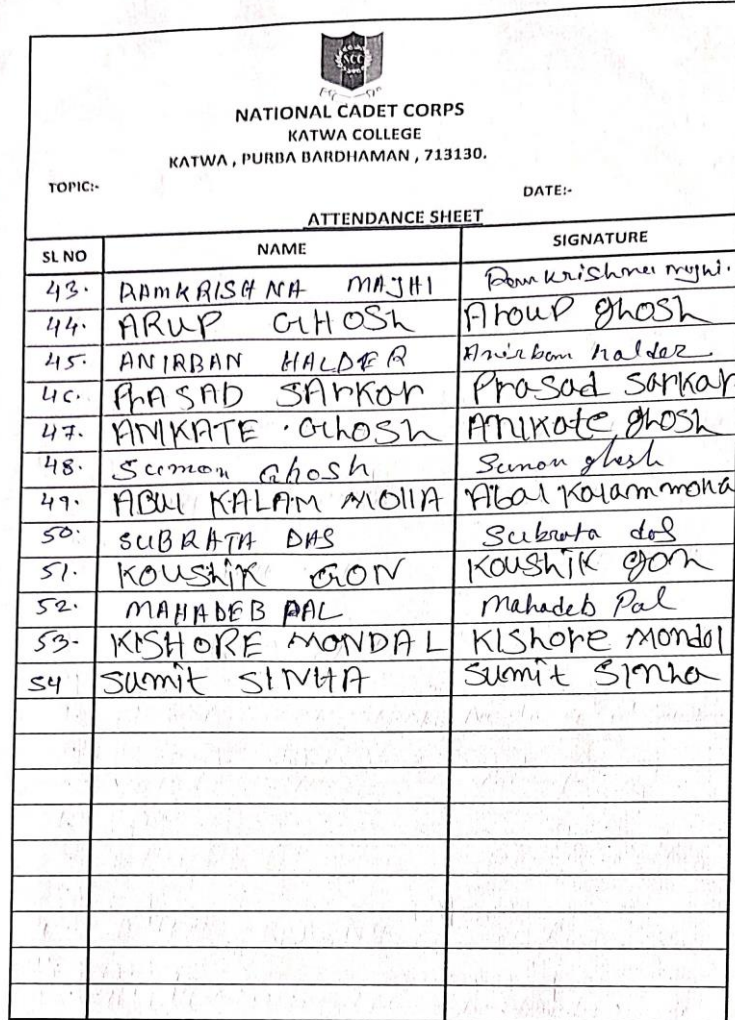 NCC
NATIONAL CADET CORPS
KATWA COLLEGE
KATWA , PURBA BARDHAMAN , 713130.
TOPIC:- DATE:-
ATTENDANCE SHEET
SL NO NAME SIGNATURE
43. RAMKRISHNA MAJHI Ramkrishna majhi.
44. ARUP GHOSh Aroup ghosh
45. ANIRBAN HALDER Anirban halder
46. PRASAD SArkar Prasad Sarkar
47. ANIKATE . GhOSh ANIKate ghosh
48. Sumon Ghosh Sumon ghosh
49. ABUl KALAM MOllA Abal Kalam molla
50. SUBRATA DAS Subrata das
51. KOUShiK GON KOUShiK gon
52. MAHADEB PAL Mahadeb Pal
53- KISHORE MONDAL KIShore Mondol
54 Sumit SINHA Sumit SInha